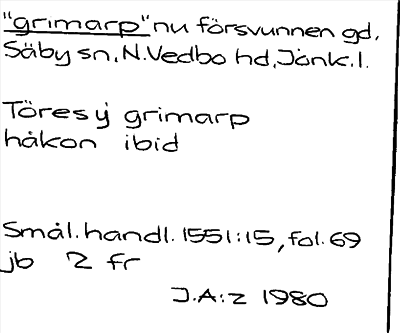 "grimarp" nu försvunnen gd.
Säby sn, N. Vedbo hd, Jönk. l.
Töres ÿ grimarp
håkon ibid
Smål. handl. 1551:15, fol. 69
jb 2 fr
J.A:z 1980